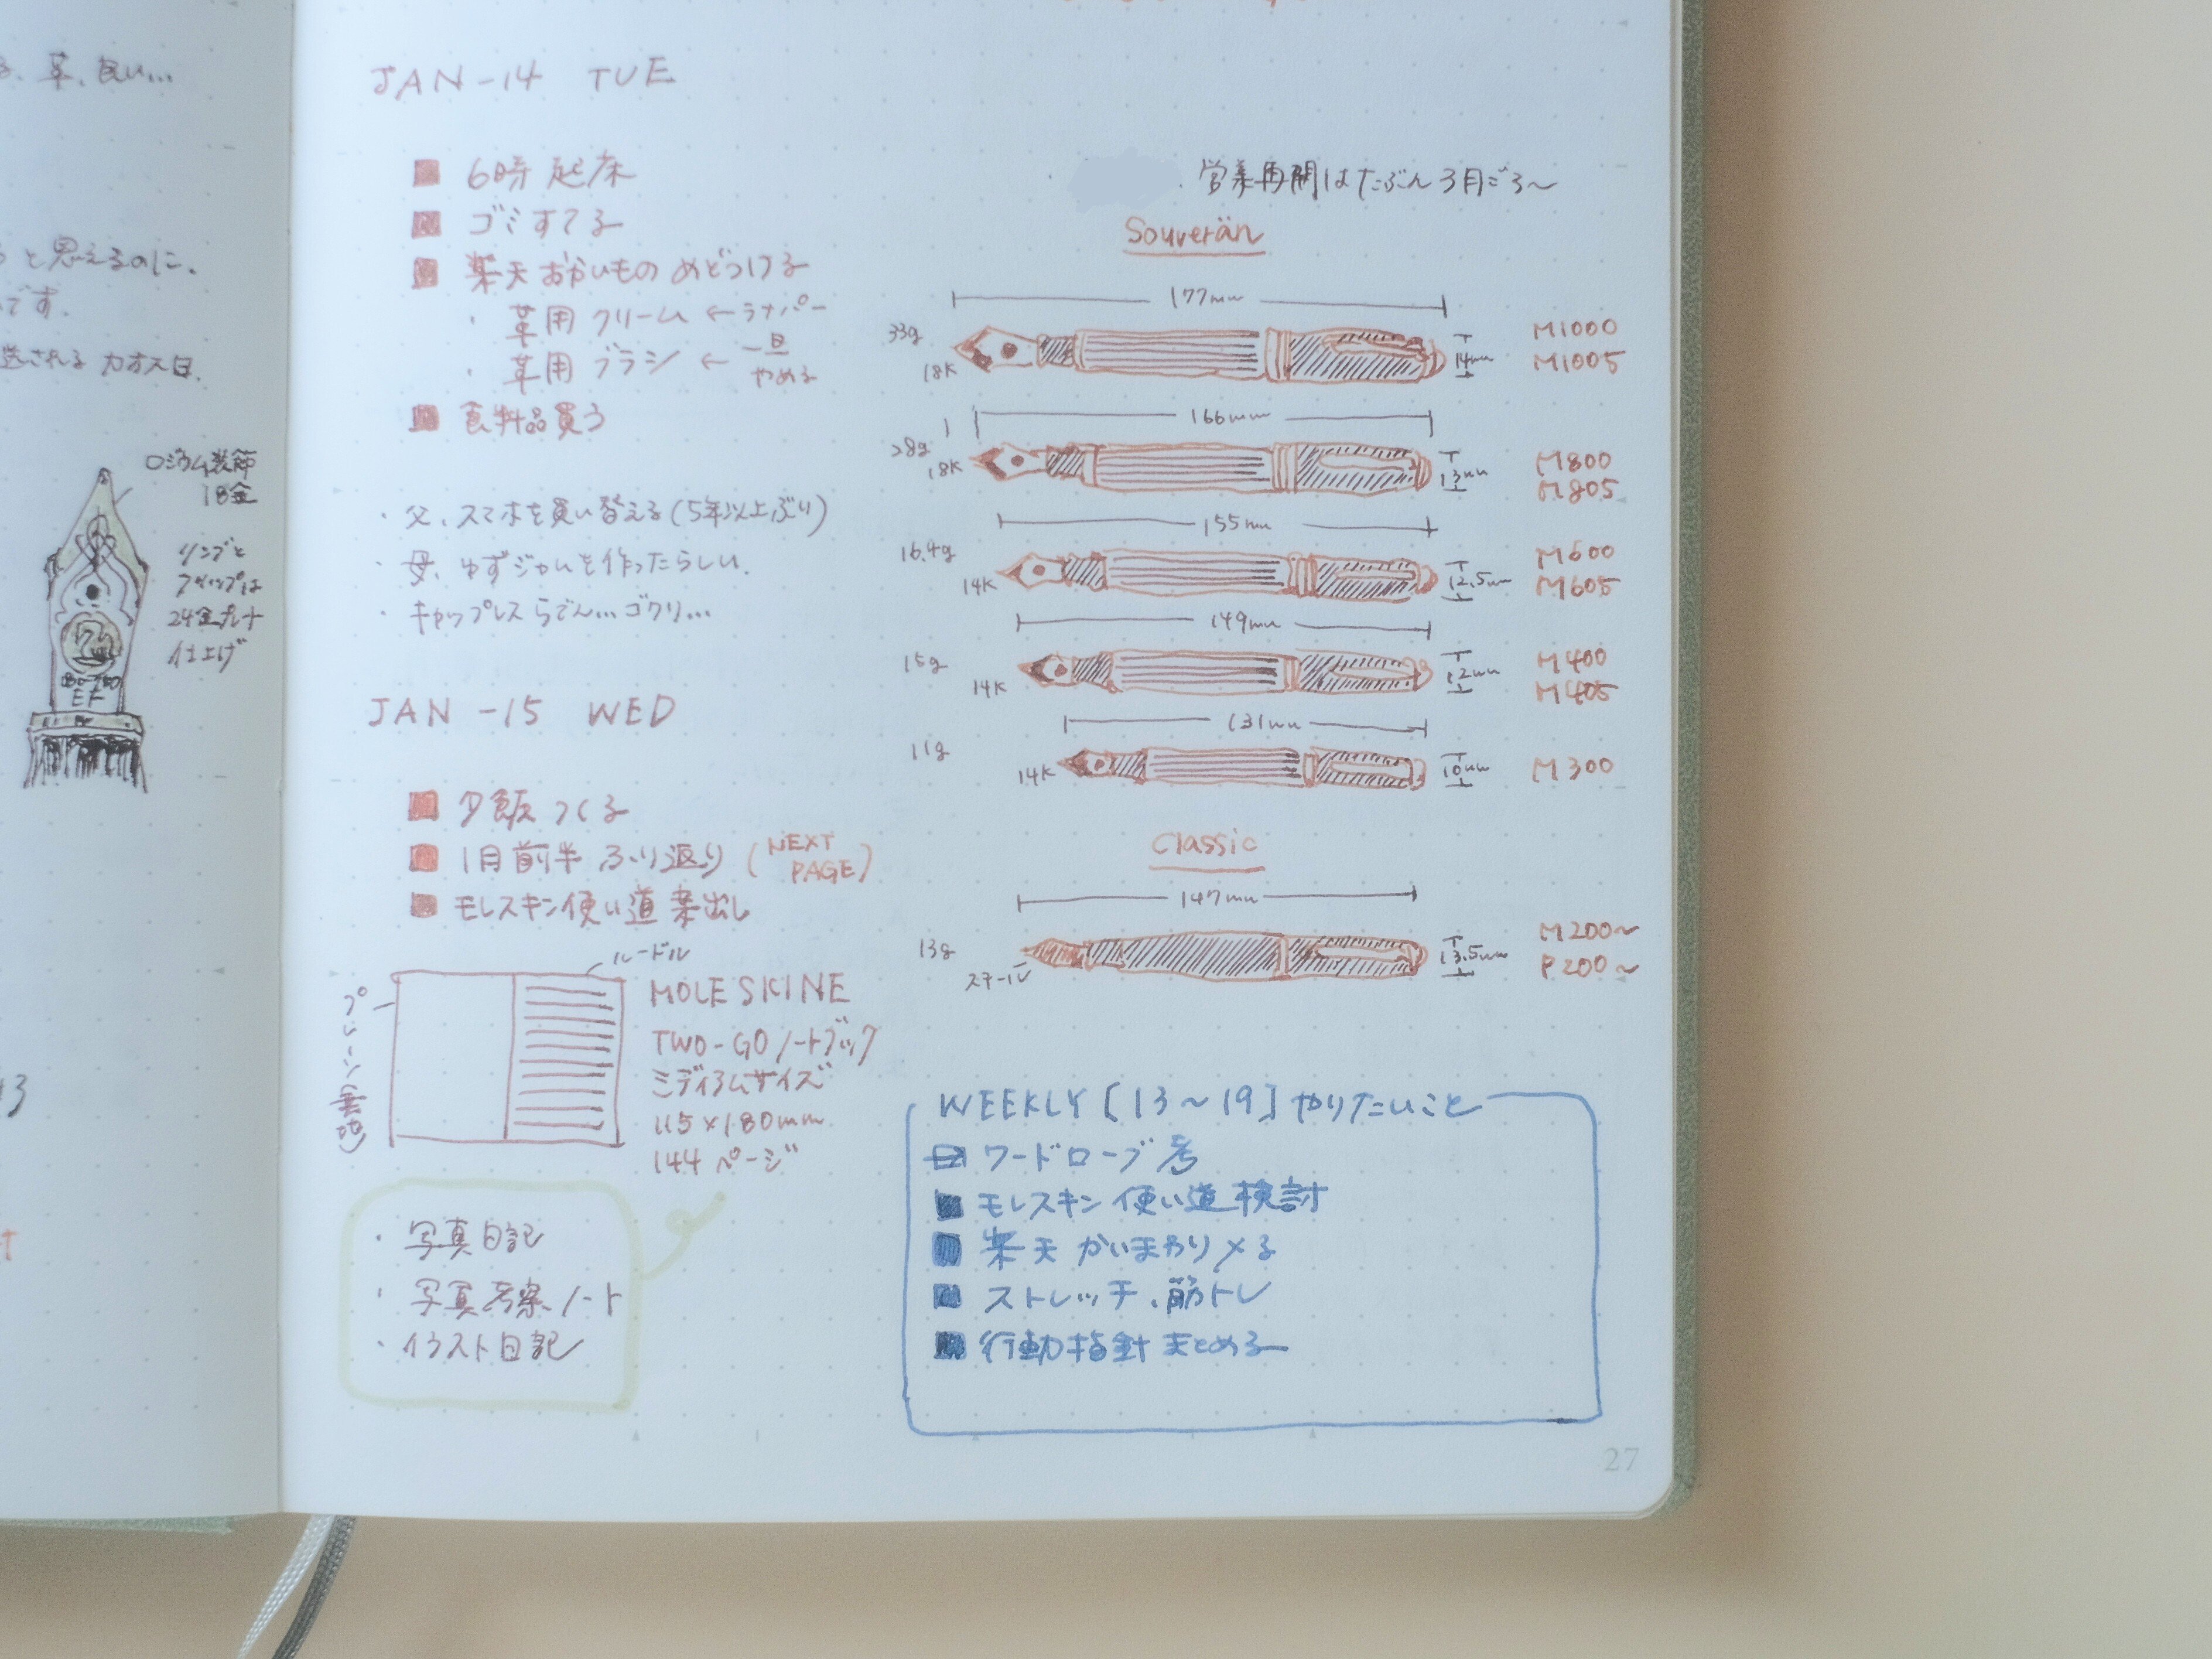 、革、良い...
と思えるのに、
です。
送される カオス日.
ロジウム装飾
18金
リングと
クリップは
24金プレート
仕上げ
EF
JAN-14 TUE
6時 起床
ゴミすてる
楽天 おかいもの めどつける
・革用 クリーム ← ラナパー
・革用 ブラシ ← 一旦
やめる
食料品買う
・父、スマホを買い替える(5年以上ぶり)
・母、ゆずジャムを作ったらしい.
・キャップレス らでん...ゴクリ...
JAN-15 WED
夕飯 つくる
1月前半 ふり返り (NEXT
PAGE)
モレスキン使い道 案出し
ルードル
プレーン(無地)
MOLESKINE
TWO-GO ノートブック
ミディアムサイズ
115×180mm
144 ページ
・写真日記
・写真考察ノート
・イラスト日記
営業再開は たぶん 3月ごろ〜
Souverän
177mm
33g
18K
14mm
M1000
M1005
166mm
28g
18K
13mm
M800
M805
155mm
16.4g
14K
12.5mm
M600
M605
149mm
15g
14K
12mm
M400
M405
131mm
11g
14K
10mm
M300
Classic
147mm
13g
スチール
13.5mm
M200〜
P200〜
WEEKLY [13〜19] やりたいこと
ワードローブ 考
モレスキン 使い道 検討
楽天 かいまわり〆る
ストレッチ、筋トレ
行動指針 まとめる
27